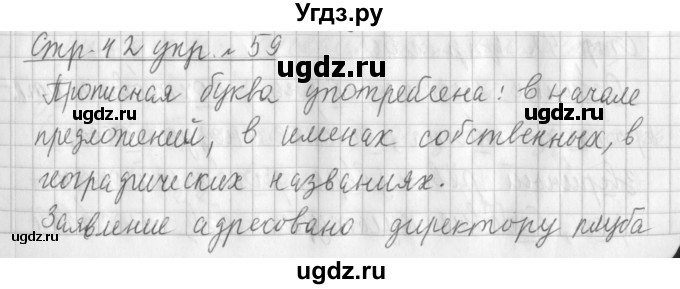 Угдз.ру
Стр. 42 упр. № 59
ugdz.ru ugdz.ru
Прописная буква употреблена: в начале
предложений, в именах собственных, в
ugdz.ru
географических названиях.
ugdz.ru ugdz.ru
Заявление адресовано директору клуба
ugdz.ru